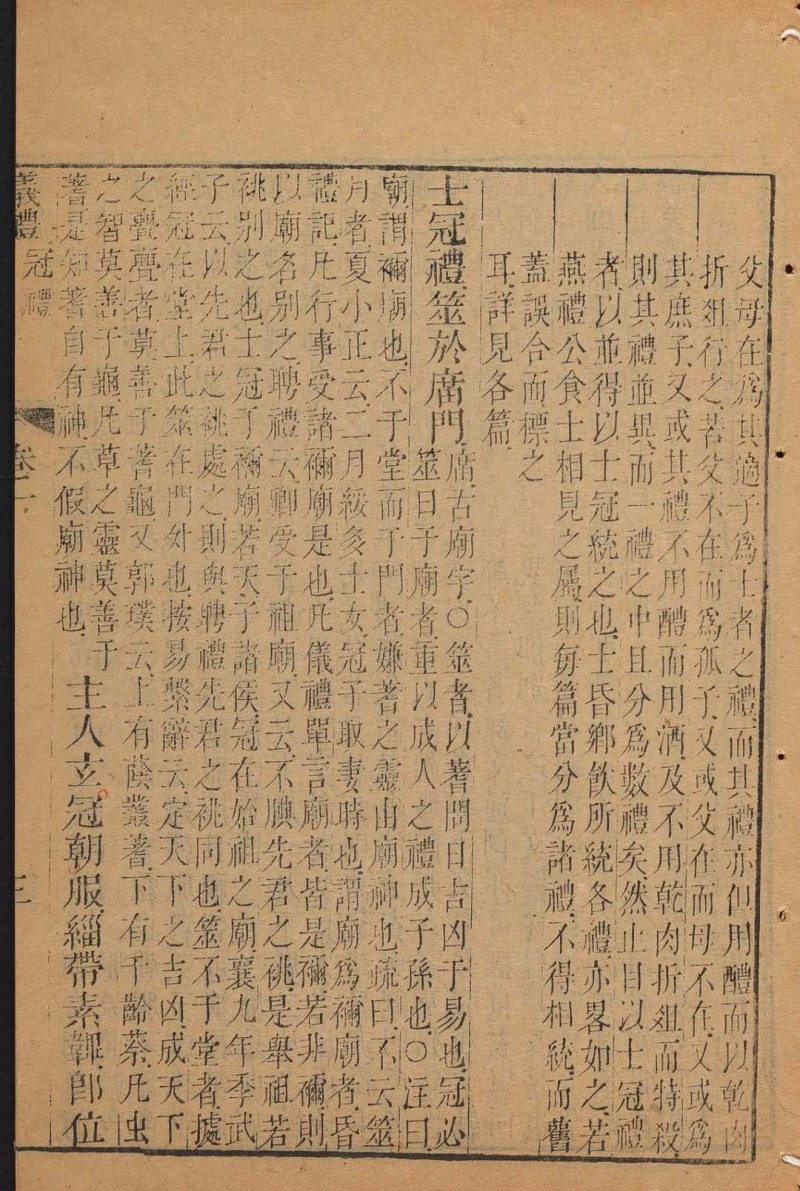 父母在爲其適子爲士者之禮而其禮亦但用醴而以乾肉
折俎行之若父不在而爲孤子又或父在而母不在又或爲
其庶子又或其禮不用醴而用酒及不用乾肉折俎而特殺
則其禮並異而一禮之中且分爲數禮矣然止目以士冠禮
者以並得以士冠統之也士昏鄉飲所統各禮亦畧如之若
燕禮公食士相見之屬則每篇當分爲諸禮不得相統而舊
蓋誤合而標之
耳詳見各篇
士冠禮筮於庿門
庿古廟字○筮者以蓍問日吉凶于易也冠必
筮日于廟者重以成人之禮成子孫也○注曰
廟謂禰廟也不于堂而于門者嫌蓍之靈由廟神也疏曰不云筮
月者夏小正云二月綏多士女冠子取妻時也謂廟爲禰廟者昏
禮記凡行事受諸禰廟是也凡儀禮單言廟者皆是禰若非禰則
以廟名別之聘禮云卿受于祖廟又云不腆先君之祧是舉祖若
祧別之也士冠于禰廟若天子諸侯冠在始祖之廟襄九年季武
子云以先君之祧處之則與聘禮先君之祧同也筮不于堂者據
經冠在堂上此筮在門外也按易繫辭云定天下之吉凶成天下
之亹亹者莫善于蓍龜又郭璞云上有蔭叢蓍下有千齡蔡凡虫
之智莫善于龜凡草之靈莫善于
蓍是知蓍自有神不假廟神也
主人玄冠朝服緇帶素韠卽位
儀禮 冠禮 卷一 三